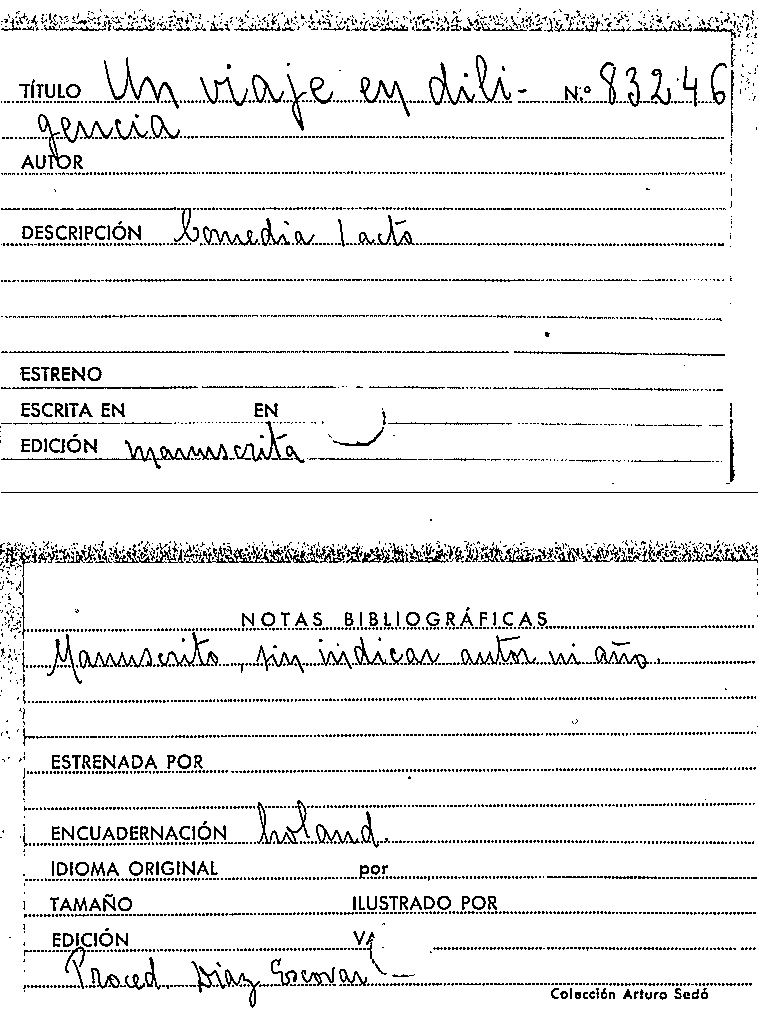 TÍTULO Un viaje en dili- N.º 83246
gencia
AUTOR
DESCRIPCIÓN Comedia 1 acto
ESTRENO
ESCRITA EN EN
EDICIÓN manuscrita
NOTAS BIBLIOGRÁFICAS
Manuscrito, sin indicar autor ni año.
ESTRENADA POR
ENCUADERNACIÓN holand.
IDIOMA ORIGINAL por
TAMAÑO ILUSTRADO POR
EDICIÓN
Proced. Diaz Escovar
Colección Arturo Sedó